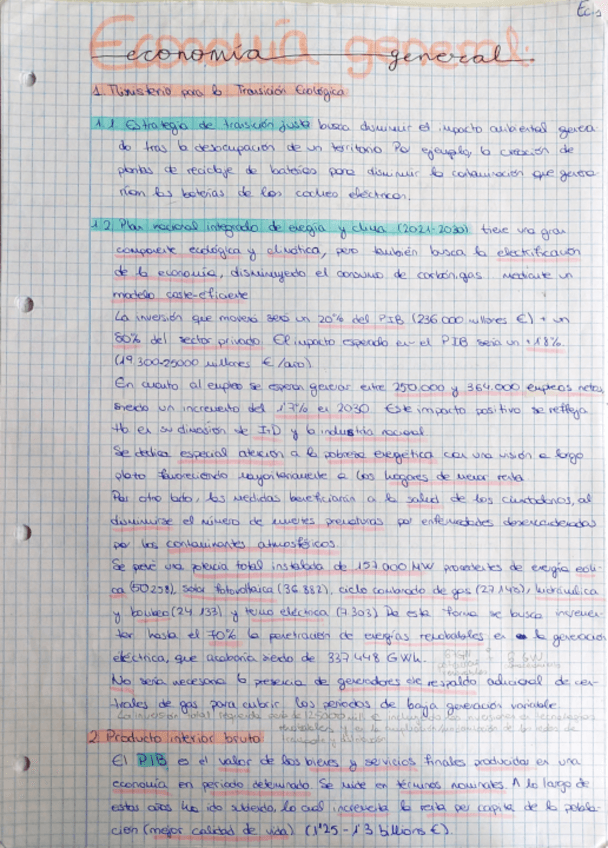 Ec1
Economía general.
economía general.
1. Ministerio para la Transición Ecológica
1.1 Estrategia de transición justa busca disminuir el impacto ambiental genera
do tras la desocupación de un territorio. Por ejemplo, la creación de
plantas de reciclaje de baterías para disminuir la contaminación que genera-
rían las baterías de los coches eléctricos.
1.2 Plan nacional integrado de energía y clima (2021-2030) tiene una gran
componente ecológica y climática, pero también busca la electrificación
de la economía, disminuyendo el consumo de carbón, gas mediante un
modelo coste-eficiente
La inversión que moverá será un 20% del PIB (236 000 millones €) + un
80% del sector privado El impacto esperado en el PIB sería un +1'8%.
(19 300-25000 millones €/año)
En cuanto al empleo se esperan generar entre 250.000 y 364.000 empleos netos,
siendo un incremento del 1'7% en 2030. Este impacto positivo se refleja
tb en su dimensión de I+D y la industria nacional
Se dedica especial atención a la pobreza energética con una visión a largo
plazo favoreciendo mayoritariamente a los hogares de menor renta
Por otro lado, las medidas beneficiarán a la salud de los ciudadanos, al
disminuirse el número de muertes prematuras por enfermedades desencadenadas
por los contaminantes atmosféricos.
Se prevé una potencia total instalada de 157 000 MW procedentes de energía eóli-
ca (50 258), solar fotovoltaica (36.882), ciclo combinado de gas (27 146), hidráulica
y bombeo (24 133) y termo eléctrica (7 303) De esta forma se busca incremen-
tar hasta el 70% la penetración de energías renovables en la generación
eléctrica, que acabaría siendo de 337 448 GWh.
No sería necesaria la presencia de generadores de respaldo adicional de cen-
trales de gas para cubrir los periodos de baja generación variable
La inversión total
2. Producto interior bruto:
El PIB es el valor de los bienes y servicios finales producidos en una
economía en periodo determinado Se mide en términos nominales. A lo largo de
estos años ha ido subiendo, lo cual incrementa la renta per capita de la pobla-
ción (mejor calidad de vida) (1'25 - 1'3 billions €).